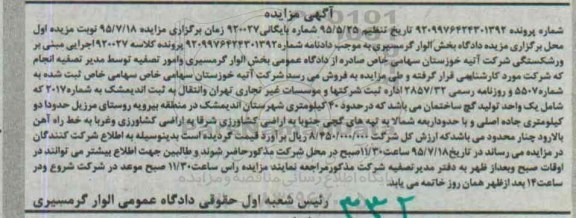 آگهی مزایده
شماره پرونده ۹۲۰۹۹۷۶۴۲۴۳۰۱۳۹۲ تاریخ تنظیم ۹۵/۵/۲۵ شماره بایگانی ۹۲۰۰۲۷ زمان برگزاری مزایده ۹۵/۷/۱۸ نوبت مزیده اول
محل برگزاری مزیده دادگاه بخش الوار گرمسیری به موجب دادنامه شماره ۹۲۰۹۹۷۶۴۲۴۳۰۱۳۹۲ پرونده کلاسه ۹۲۰۰۲۷ اجرایی مبنی بر
ورشکستگی شرکت آتیه خوزستان سهامی خاص صادره از دادگاه عمومی بخش الوار گرمسیری وامور تصفیه توسط مدیر تصفیه انجام
که شرکت مورد کارشناسی قرار گرفته و طی مزایده به فروش می رسد شرکت آتیه خوزستان سهامی خاص سهامی خاص ثبت شده به
شماره ۵۵۰۷ و روزنامه رسمی ۲۸۵۷/۳۲ اداره ثبت شرکتها و موسسات غیر تجاری تهران وانتقال به ثبت اندیمشک به شماره ۲۰۱۷ که
شامل یک واحد تولید گچ ساختمان می باشد که در حدود ۴۰ کیلومتری شهرستان اندیمشک در منطقه بیرویه روستای مرزیل حدودا دو
کیلومتری جاده اصلی و با حدود اربعه شمالا به تپه های گچی جنوبا به اراضی کشاورزی شرقا به اراضی کشاورزی وغربا به خط راه آهن
بالارود چنار محدود می باشد که ارزش کل شرکت ۸/۴۵۰/۰۰۰/۰۰۰ ریال برآورد قیمت گردیده است بدینوسیله به اطلاع شرکت کنندگان
در مزایده می رساند در تاریخ ۹۵/۷/۱۸ ساعت ۱۱/۳۰ صبح در محل شرکت مذکور حاضر شوند و طالبین جهت اطلاع بیشتر می توانند در
اوقات صبح وبعداز ظهر به دفتر مدیر تصفیه شرکت مذکور مراجعه نمایند مزایده راس ساعت ۱۱/۳۰ صبح موعد در شرکت شروع ودر
ساعت ۱۴ بعد از ظهر همان روز خاتمه می یابد
رئیس شعبه اول حقوقی دادگاه عمومی الوار گرمسیری
۳۳۲